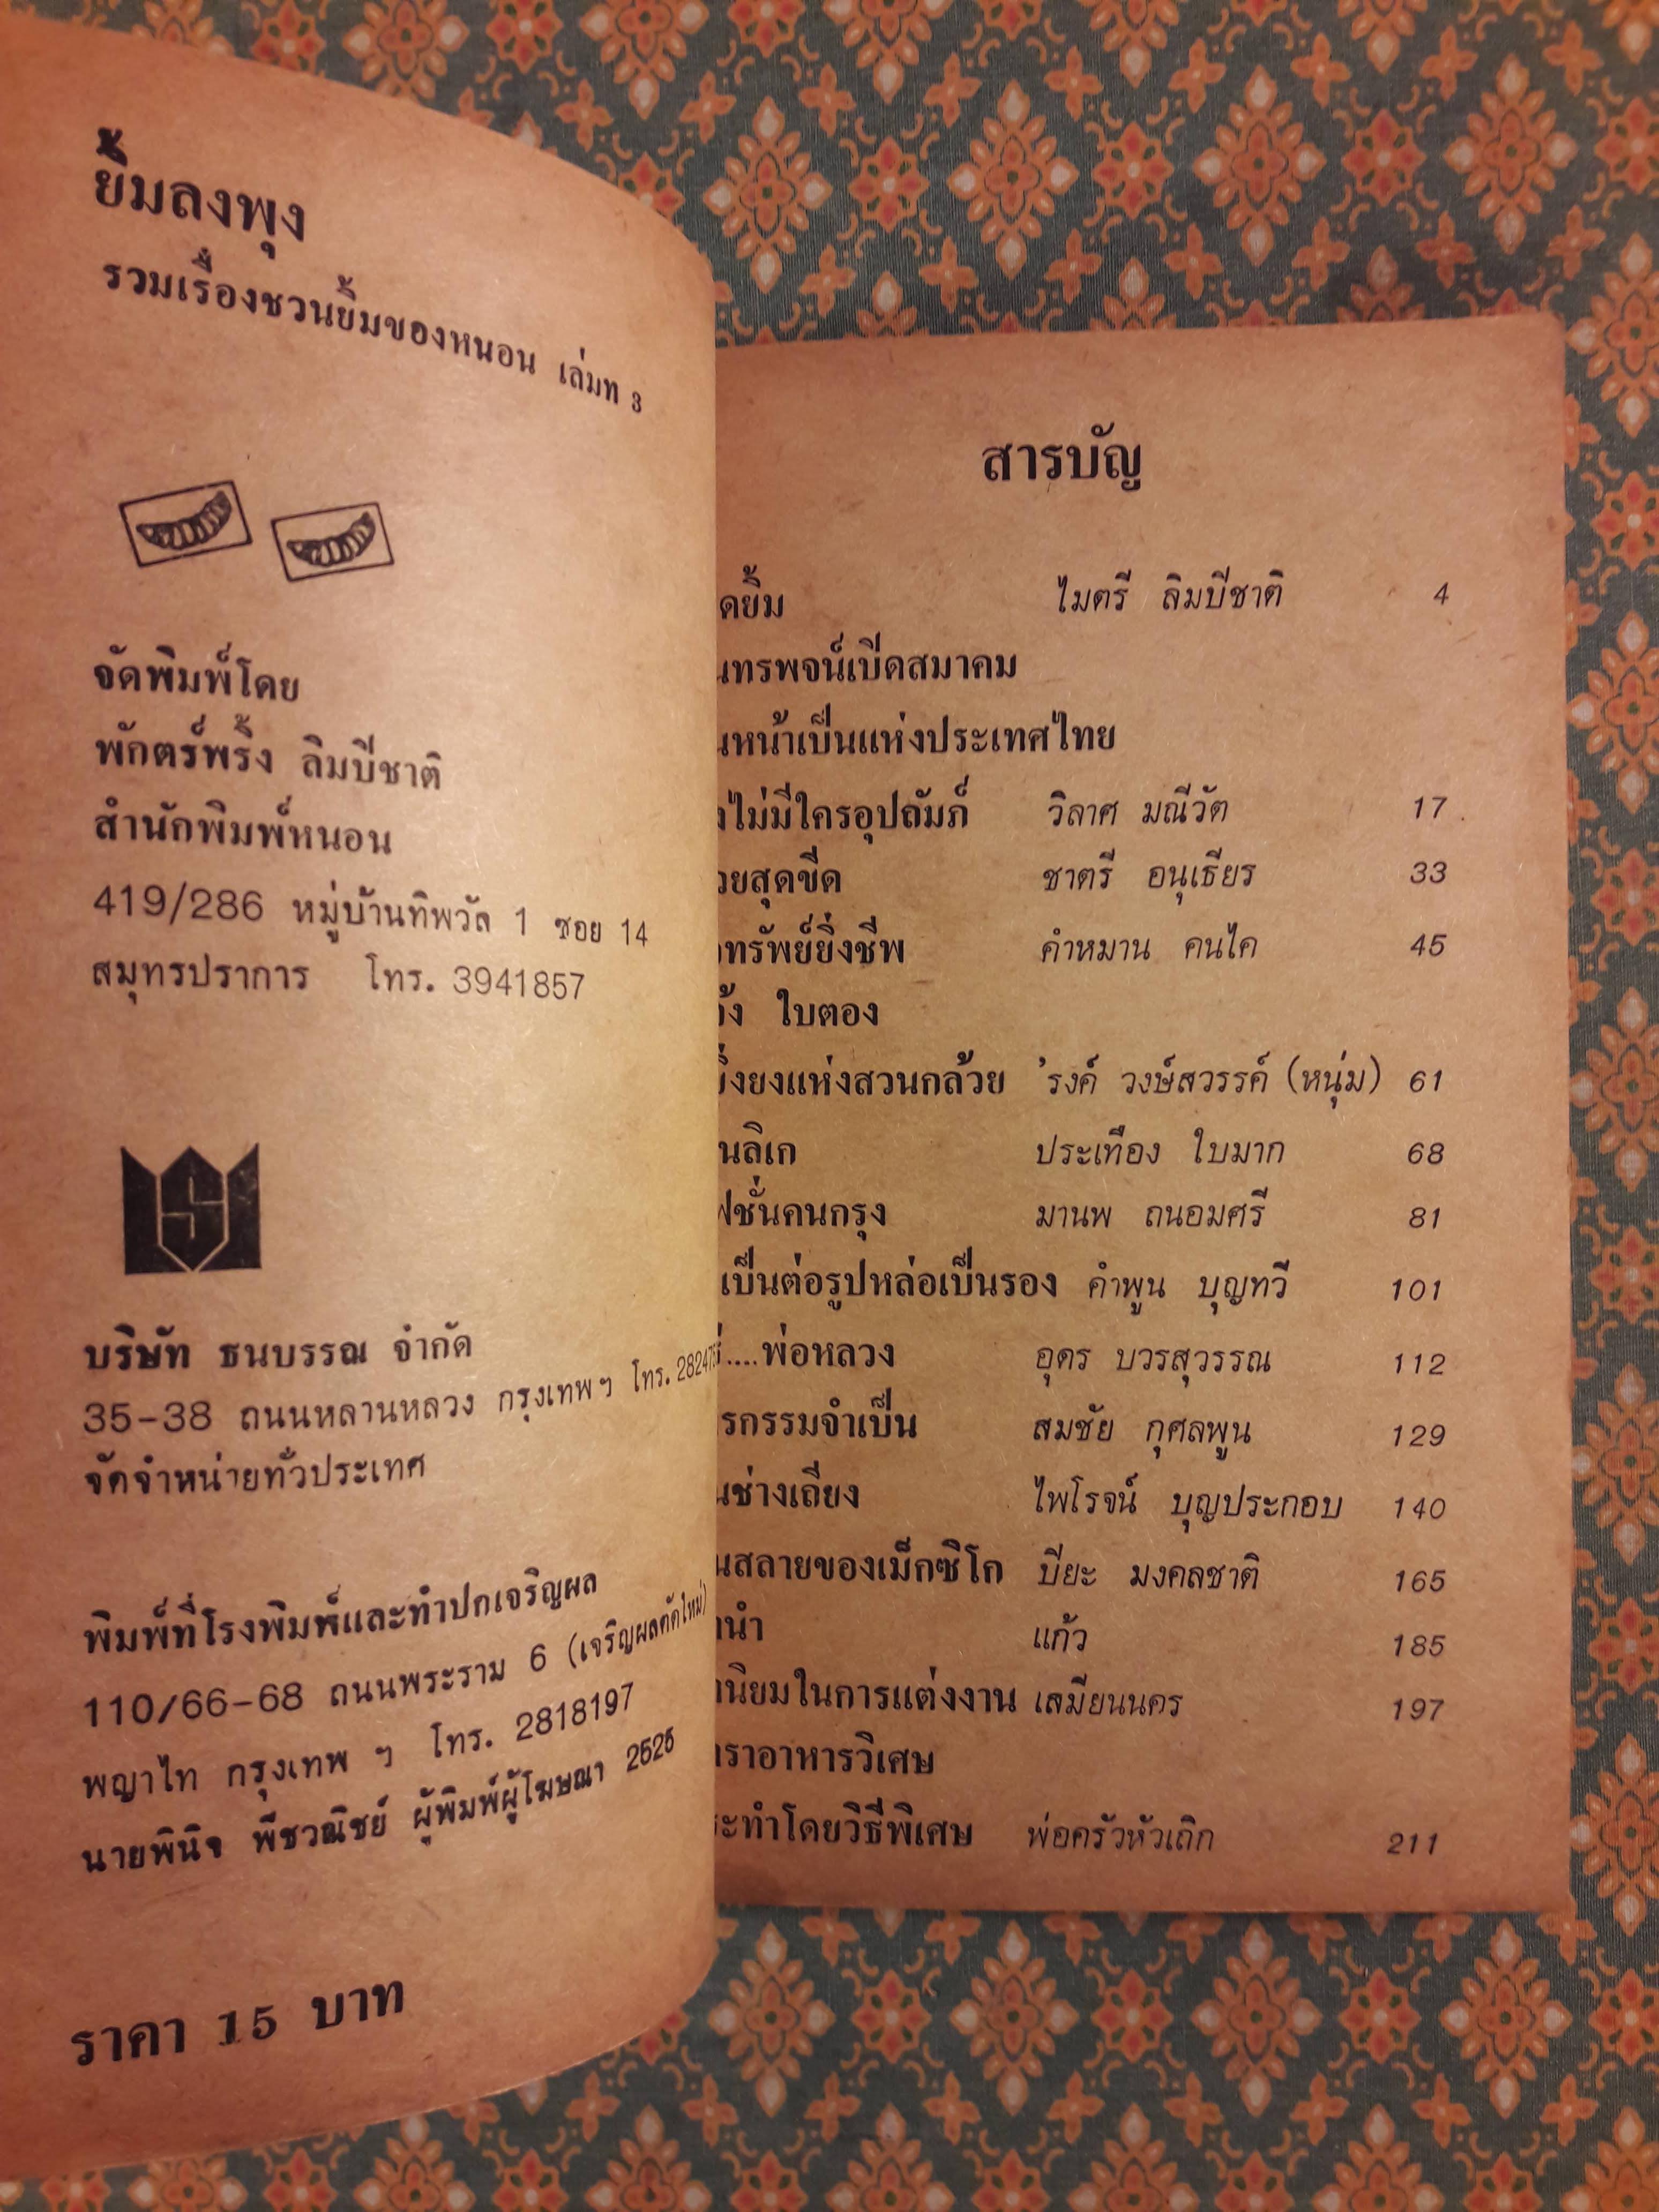 ยิ้มลงพุง
รวมเรื่องชวนยิ้มของหนอน เล่มที่ 3
จัดพิมพ์โดย
พักตร์พริ้ง ลิมปิชาติ
สำนักพิมพ์หนอน
419/286 หมู่บ้านทิพวัล 1 ซอย 14
สมุทรปราการ โทร. 3941857
บริษัท ธนบรรณ จำกัด
35-38 ถนนหลานหลวง กรุงเทพฯ โทร.
จัดจำหน่ายทั่วประเทศ
พิมพ์ที่โรงพิมพ์และทำปกเจริญผล
110/66-68 ถนนพระราม 6 (เจริญผลตัดใหม่)
พญาไท กรุงเทพ ฯ โทร. 2818197
นายพินิจ พืชวณิชย์ ผู้พิมพ์ผู้โฆษณา 2525
ราคา 15 บาท
สารบัญ
ดยิ้ม ไมตรี ลิมปิชาติ 4
นทรพจน์เปิดสมาคม
นหน้าเป็นแห่งประเทศไทย
ไม่มีใครอุปถัมภ์ วิลาศ มณีวัต 17
วยสุดขีด ชาตรี อนุเธียร 33
ทรัพย์ยิ่งชีพ คำหมาน คนไค 45
ใบตอง
ยิ่งยงแห่งสวนกล้วย 'รงค์ วงษ์สวรรค์ (หนุ่ม) 61
นลิเก ประเทือง ใบมาก 68
ฟชั่นคนกรุง มานพ ถนอมศรี 81
เป็นต่อรูปหล่อเป็นรอง คำพูน บุญทวี 101
....พ่อหลวง อุดร บวรสุวรรณ 112
รกรรมจำเป็น สมชัย กุศลพูน 129
นช่างเถียง ไพโรจน์ บุญประกอบ 140
นสลายของเม็กซิโก ปิยะ มงคลชาติ 165
นำ แก้ว 185
านิยมในการแต่งงาน เสมียนนคร 197
ราอาหารวิเศษ
ะทำโดยวิธีพิเศษ พ่อครัวหัวเถิก 211